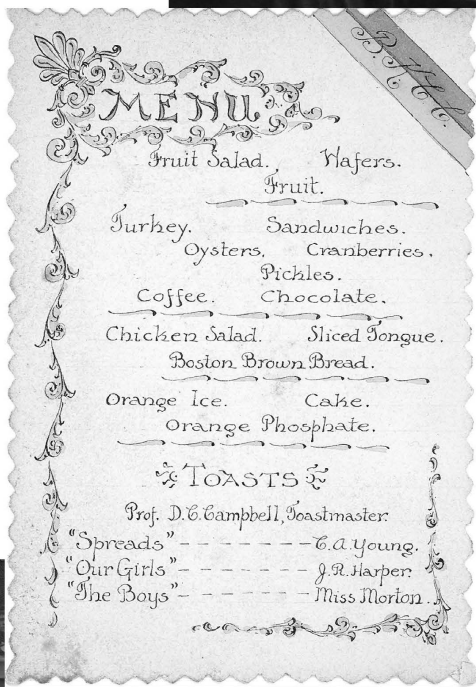 B. & H. C.
MENU
Fruit Salad. Wafers.
Fruit.
Turkey. Sandwiches.
Oysters. Cranberries.
Pickles.
Coffee. Chocolate.
Chicken Salad. Sliced Tongue.
Boston Brown Bread.
Orange Ice. Cake.
Orange Phosphate.
TOASTS
Prof. D. C. Campbell, Toastmaster.
"Spreads" - - - - - - - C. A. Young.
"Our Girls" - - - - - - J. R. Harper.
"The Boys" - - - - - - Miss Morton.